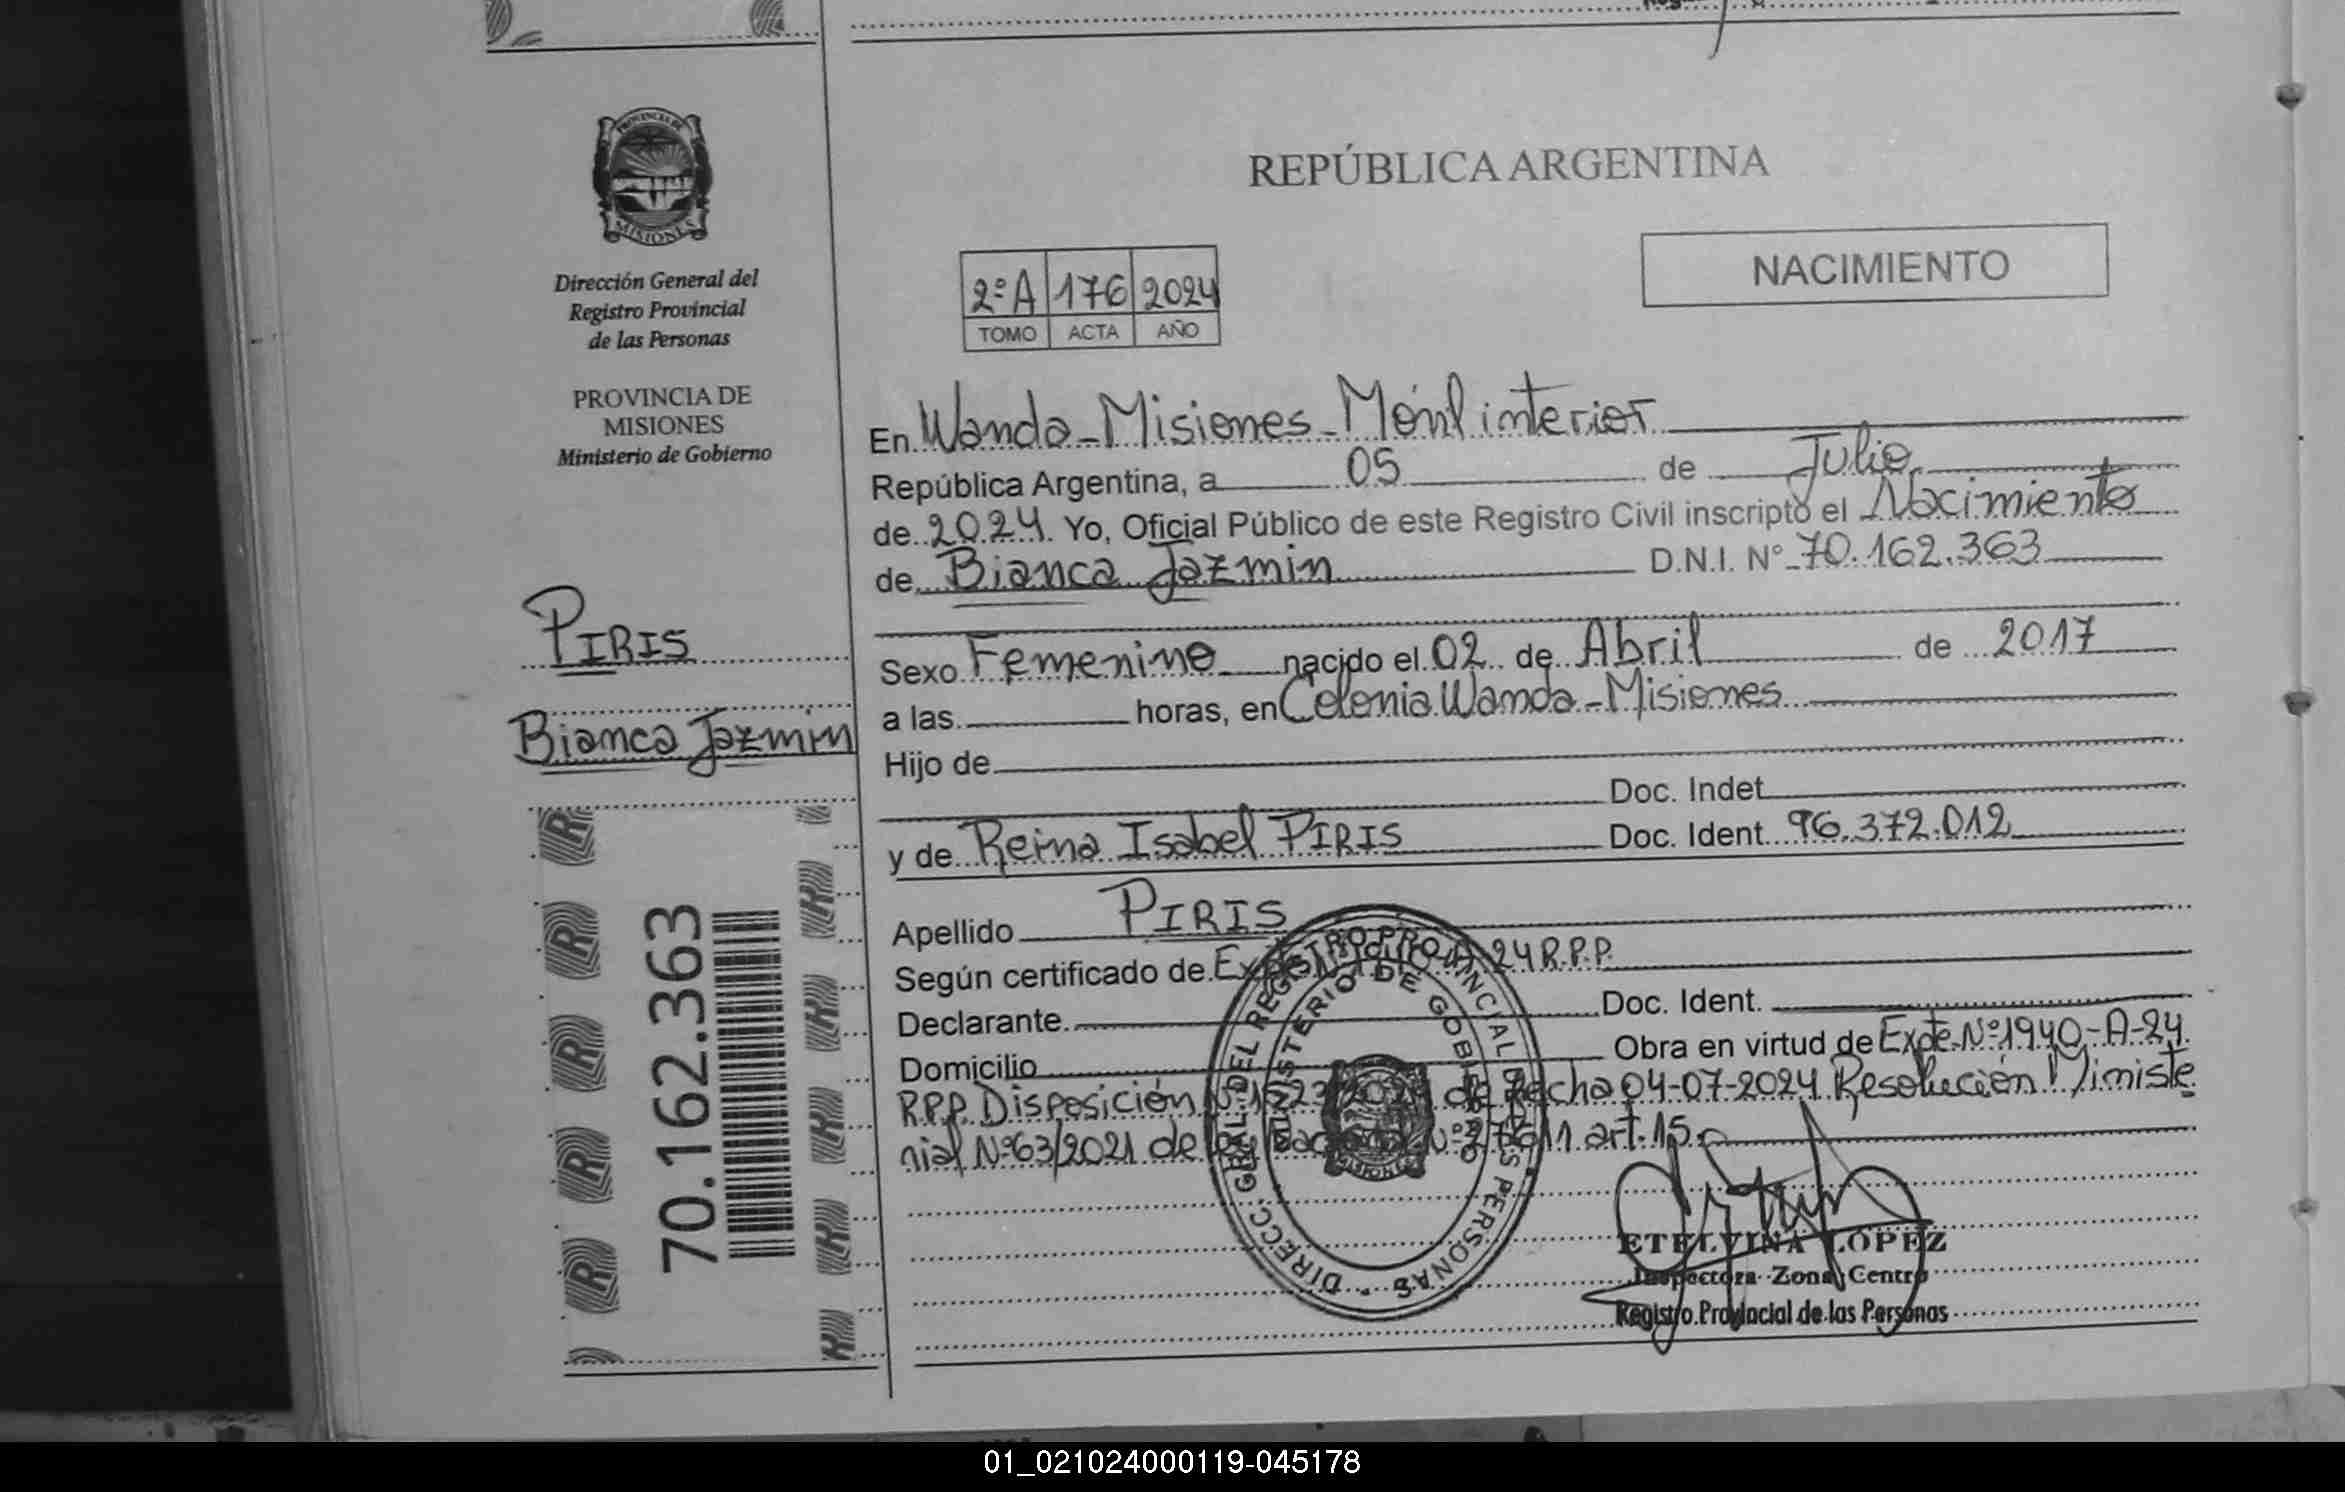 PROVINCIA DE
MISIONES
Dirección General del
Registro Provincial
de las Personas
PROVINCIA DE
MISIONES
Ministerio de Gobierno
PIRIS
Bianca Jazmin
70.162.363
REPÚBLICA ARGENTINA
NACIMIENTO
2º A 176 2024
TOMO ACTA AÑO
En Wanda - Misiones - Móvil interior
República Argentina, a 05 de Julio
de 2024. Yo, Oficial Público de este Registro Civil inscripto el Nacimiento
de Bianca Jazmin D.N.I. Nº 70.162.363
Sexo Femenino nacido el 02 de Abril de 2017
a las horas, en Colonia Wanda - Misiones
Hijo de
Doc. Indet
y de Reina Isabel PIRIS Doc. Ident. 96.372.012
Apellido PIRIS
Según certificado de Expte Nº 1940-A-24 R.P.P.
Declarante Doc. Ident.
Domicilio Obra en virtud de Expte. Nº 1940-A-24.
R.P.P. Disposición Nº de fecha 04-07-2024 Resolución Ministe
rial Nº 63/2021 de art. 15.
DIRECC. GRAL. DEL REGISTRO PROVINCIAL DE LAS PERSONAS
MINISTERIO DE GOBIERNO
MISIONES
ETELVINA LOPEZ
Inspectora Zona Centro
Registro Provincial de las Personas
01_021024000119-045178